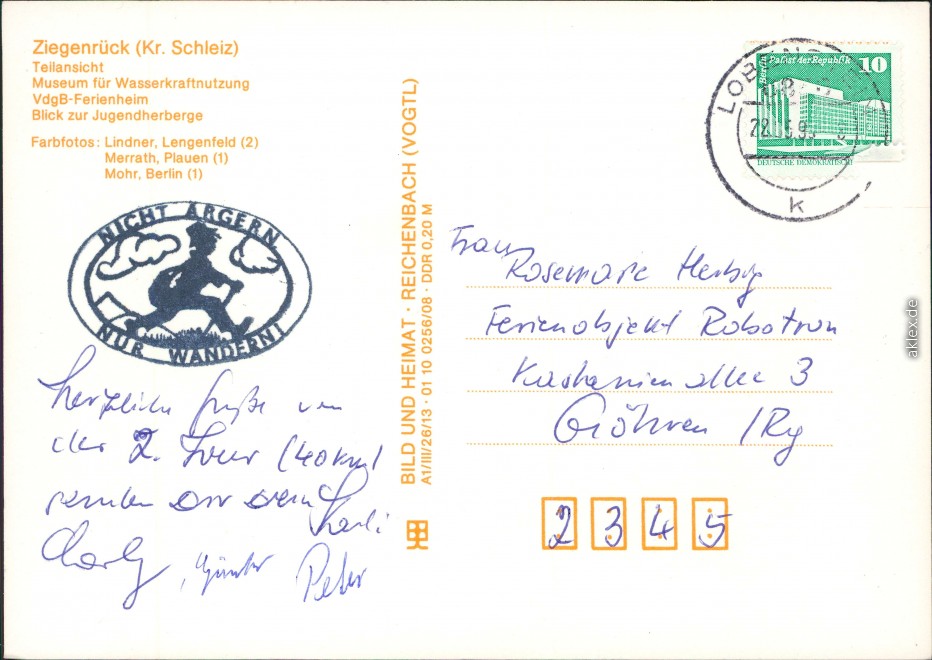 Ziegenrück (Kr. Schleiz)
Teilansicht
Museum für Wasserkraftnutzung
VdgB-Ferienheim
Blick zur Jugendherberge
Farbfotos: Lindner, Lengenfeld (2)
Merrath, Plauen (1)
Mohr, Berlin (1)
NICHT ÄRGERN
NUR WANDERN!
Herzliche Grüße von
der 2. Tour (40 km)
senden
Charly, Günter Peter
BILD UND HEIMAT · REICHENBACH (VOGTL)
A1/III/26/13 · 01 10 0256/08 · DDR 0,20 M
Berlin Palast der Republik 10
DEUTSCHE DEMOKRATISCHE
k
Frau
Rosemarie
Ferienobjekt Robotron
Kastanienallee 3
Göhren / Rg
2 3 4 5
aklex.de